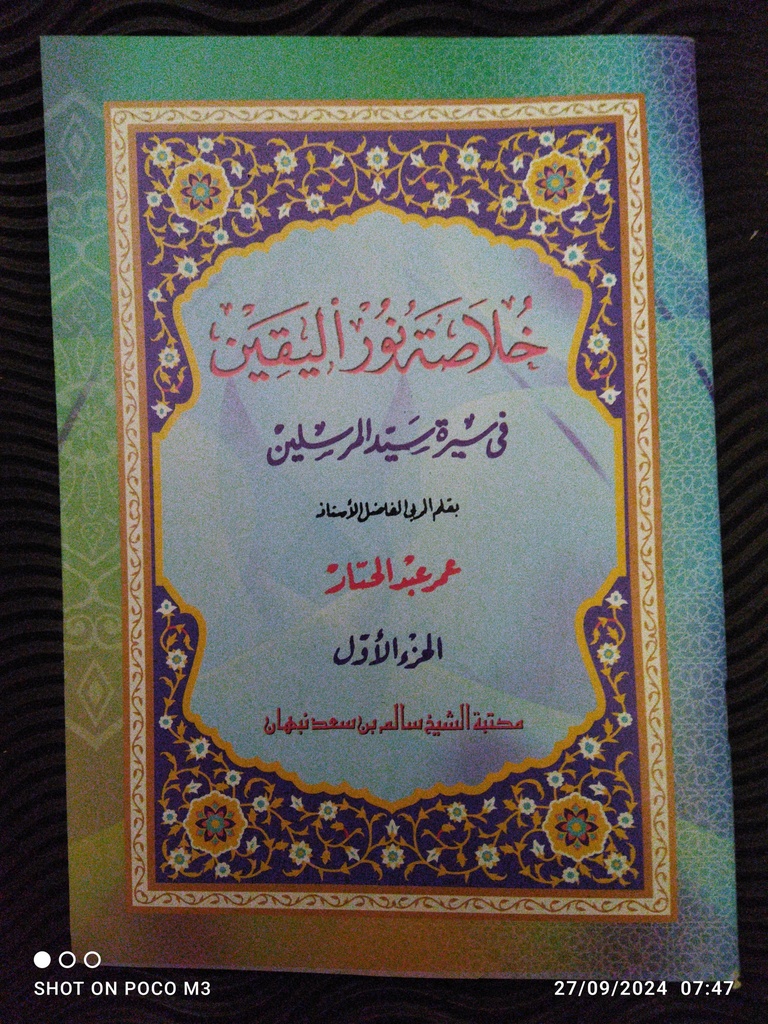 خُلَاصَةُ نُوْرُ الْيَقِيْنَ
فى سيرة سَيّد المرسلين
بقلم المربى الفاضل الأستاذ
عمر عبد الجبّار
الجزء الأوّل
مكتبة الشيخ سالم بن سعد نبهان
SHOT ON POCO M3
27/09/2024 07:47